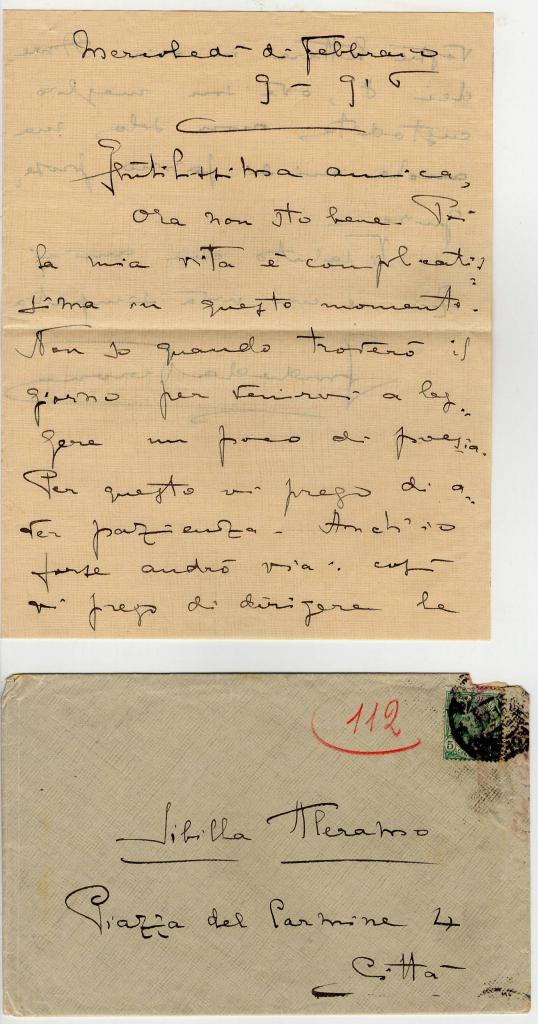 Mercoledì di febbraio
9 - 916
Gentilissima amica,
Ora non sto bene. Poi
la mia vita è complicatis
sima in questo momento.
Non so quando troverò il
giorno per venirvi a leg
gere un poco di poesia.
Per questo vi prego di a
ver pazienza. Anch'io
forse andrò via: così
vi prego di dirigere le
112
5
Sibilla Aleramo
Piazza del Carmine 4
Città